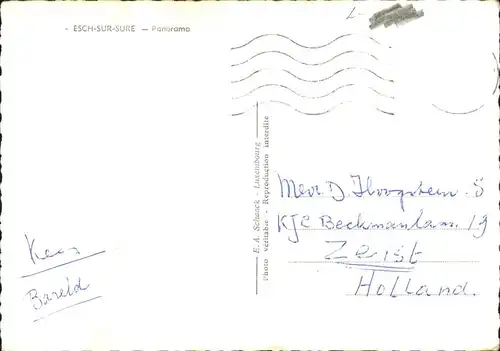 - ESCH-SUR-SURE — Panorama
E. A. Schaack - Luxembourg
Photo véritable - Reproduction interdite
D. Hoogsteen
Beckmanlaan. 19
Zeist
Holland.
Kees
Bareld